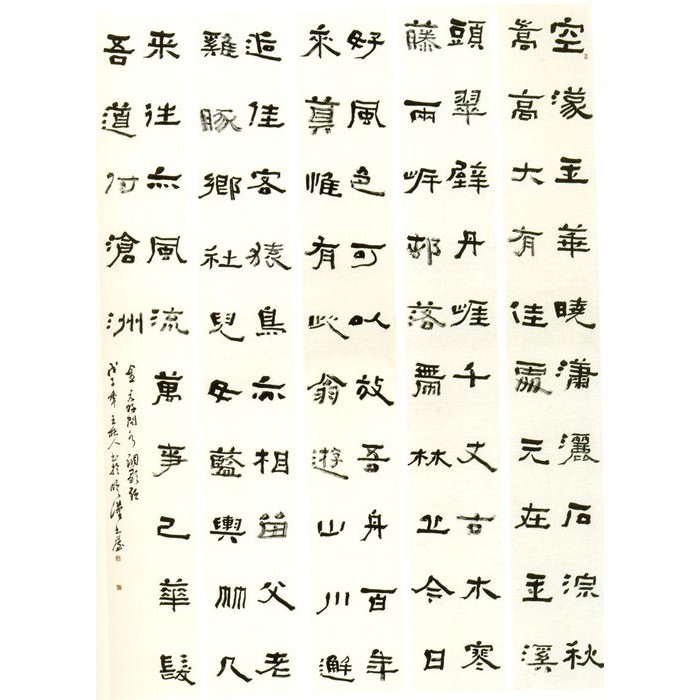 空濛玉華曉瀟灑石淙秋
嵩高大有佳處元在玉溪
頭翠壁丹崕千丈古木寒
藤兩岸邨落帶林丘今日
好風色可以放吾舟百年
來算惟有此翁遊山川邂
逅佳客猿鳥亦相留父老
雞豚鄉社兒女藍輿竹几
来往亦風流萬事已華髮
吾道付滄洲
金元好問水調歌頭
戊子年王秋人书於